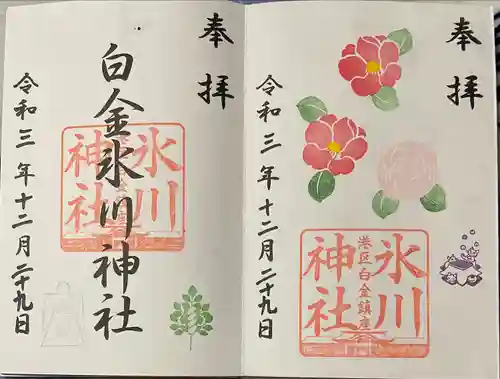 奉拝
港区白金鎮座
氷川神社
令和三年十二月二十九日
奉拝
白金氷川神社
氷川神社
令和三年十二月二十九日